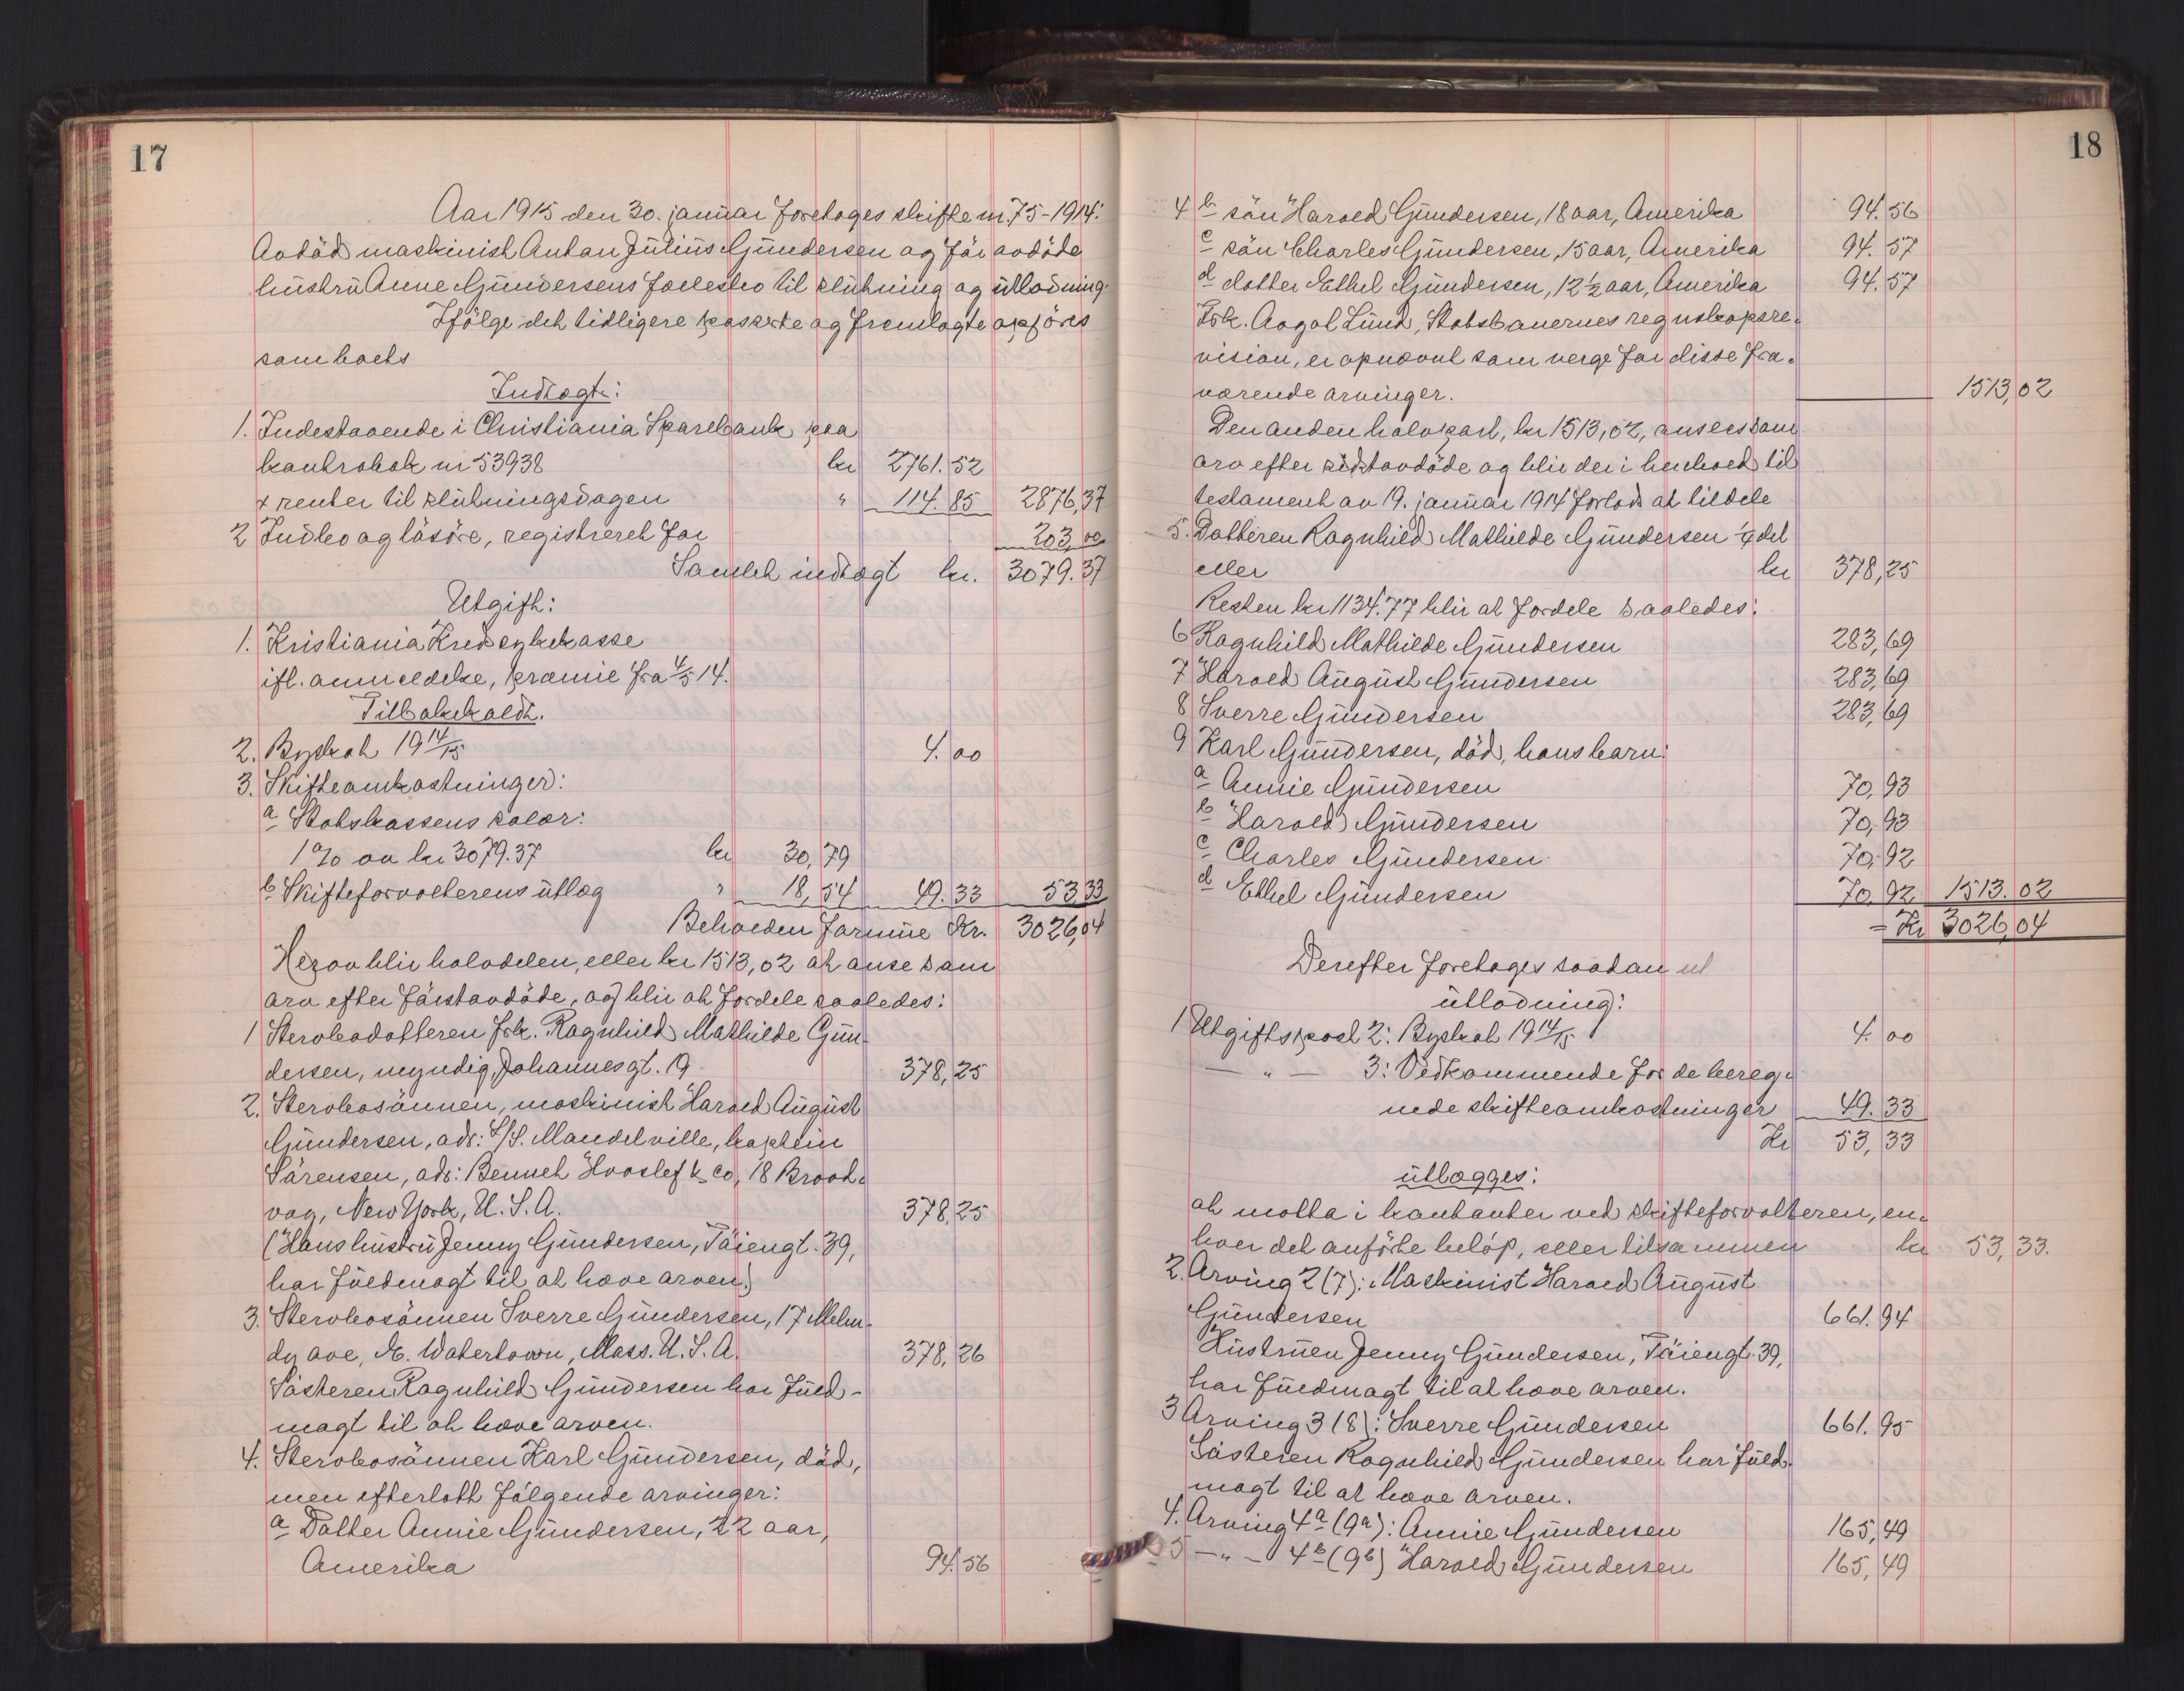 17
Aar 1915 den 30. januar foretoges skifte nr. 75-1914:
Avdöd maskinist Anton Julius Gundersen og för avdöde
hustru Anne Gundersens fællesbo til slutning og utlodning.
Ifölge det tidligere passerte og fremlagte opföres
som boets
Indtægt:
1. Indestaaende i Christiania Sparebank paa
kontrabok nr 53938 kr 2761.52
+ renter til slutningsdagen " 114.85 2876,37
2 Indbo og lösöre, registreret for 203,00
Samlet indtægt kr. 3079.37
Utgift:
1. Kristiania Kredsykekasse
ifl. anmeldelse, præmie fra 4/5 14.
Tilbakekaldt.
2. Byskat 1914/15 4.00
3. Skifteomkostninger:
a Statskassens salær:
1% av kr 3079.37 kr 30,79
b Skifteforvalterens utlæg " 18,54 49.33 53,33
Beholden formue Kr. 3026,04
Herav blir halvdelen, eller kr 1513,02 at anse som
arv efter förstavdöde, og blir at fordele saaledes:
1 Stervbodatteren frk. Ragnhild Mathilde Gun-
dersen, myndig, Johannesgt. 19 378,25
2. Stervbosönnen, maskinist Harald August
Gundersen, adr: S/S. Mandelville, kaptein
Sörensen, adr: Bennet Hvoslef & Co, 18 Brood-
vay, New York, U.S.A. 378,25
(Hans hustru Jenny Gundersen, Töiengt. 39,
har fuldmagt til at hæve arven)
3. Stervbosönnen Sverre Gundersen, 17 Melen-
dy ave, E. Watertown, Mass. U.S.A. 378,26
Sösteren Ragnhild Gundersen har fuld-
magt til at hæve arven.
4. Stervbosönnen Karl Gundersen, död,
men efterlatt fölgende arvinger:
a Datter Annie Gundersen, 22 aar,
Amerika 94.56
18
4 b sön Harald Gundersen, 18 aar, Amerika 94.56
c sön Charles Gundersen, 15 aar, Amerika 94.57
d datter Ethel Gundersen, 12½ aar, Amerika 94.57
Frk. Aagot Lund, Statsbanernes regnskapsre-
vision, er opnævnt som verge for disse fra-
værende arvinger. 1513,02
Den anden halvpart, kr 1513,02, ansees som
arv efter sidstavdöde og blir der i henhold til
testament av 19. januar 1914 forlods at tildele
5. Datteren Ragnhild Mathilde Gundersen ¼ del
eller kr 378,25
Resten kr 1134.77 blir at fordele saaledes:
6 Ragnhild Mathilde Gundersen 283,69
7 Harald August Gundersen 283,69
8 Sverre Gundersen 283,69
9 Karl Gundersen, död, hans barn:
a Annie Gundersen 70,93
b Harald Gundersen 70,93
c Charles Gundersen 70,92
d Ethel Gundersen 70,92 1513.02
= Kr 3026,04
Derefter foretoges saadan ut
utlodning:
1 Utgiftspost 2: Byskat 1914/15 4.00
— " — 3: Vedkommende for de bereg-
nede skifteomkostninger 49.33
Kr 53,33
utlægges:
at motta i kontanter ved skifteforvalteren, en-
hver det anförte belöp, eller tilsammen kr 53,33.
2. Arving 2 (7): Maskinist Harald August
Gundersen 661.94
Hustruen Jenny Gundersen, Töiengt. 39,
har fuldmagt til at hæve arven.
3 Arving 3 (8): Sverre Gundersen 661.95
Sösteren Ragnhild Gundersen har fuld-
magt til at hæve arven.
4. Arving 4a (9a): Annie Gundersen 165,49
5 — " — 4b (9b) Harald Gundersen 165,49